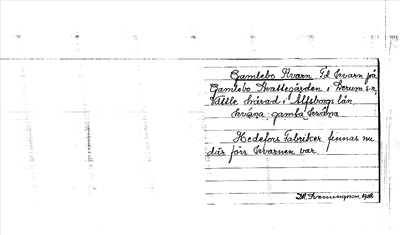 Gamlebo Kvarn Fd. kvarn på
Gamlebo Skattegården i Lerum s-n,
Vättle härad i Älfsborgs län.
kvarna: gambla kvarna
Hedefors Fabriker finnas nu
där förr kvarnen var.